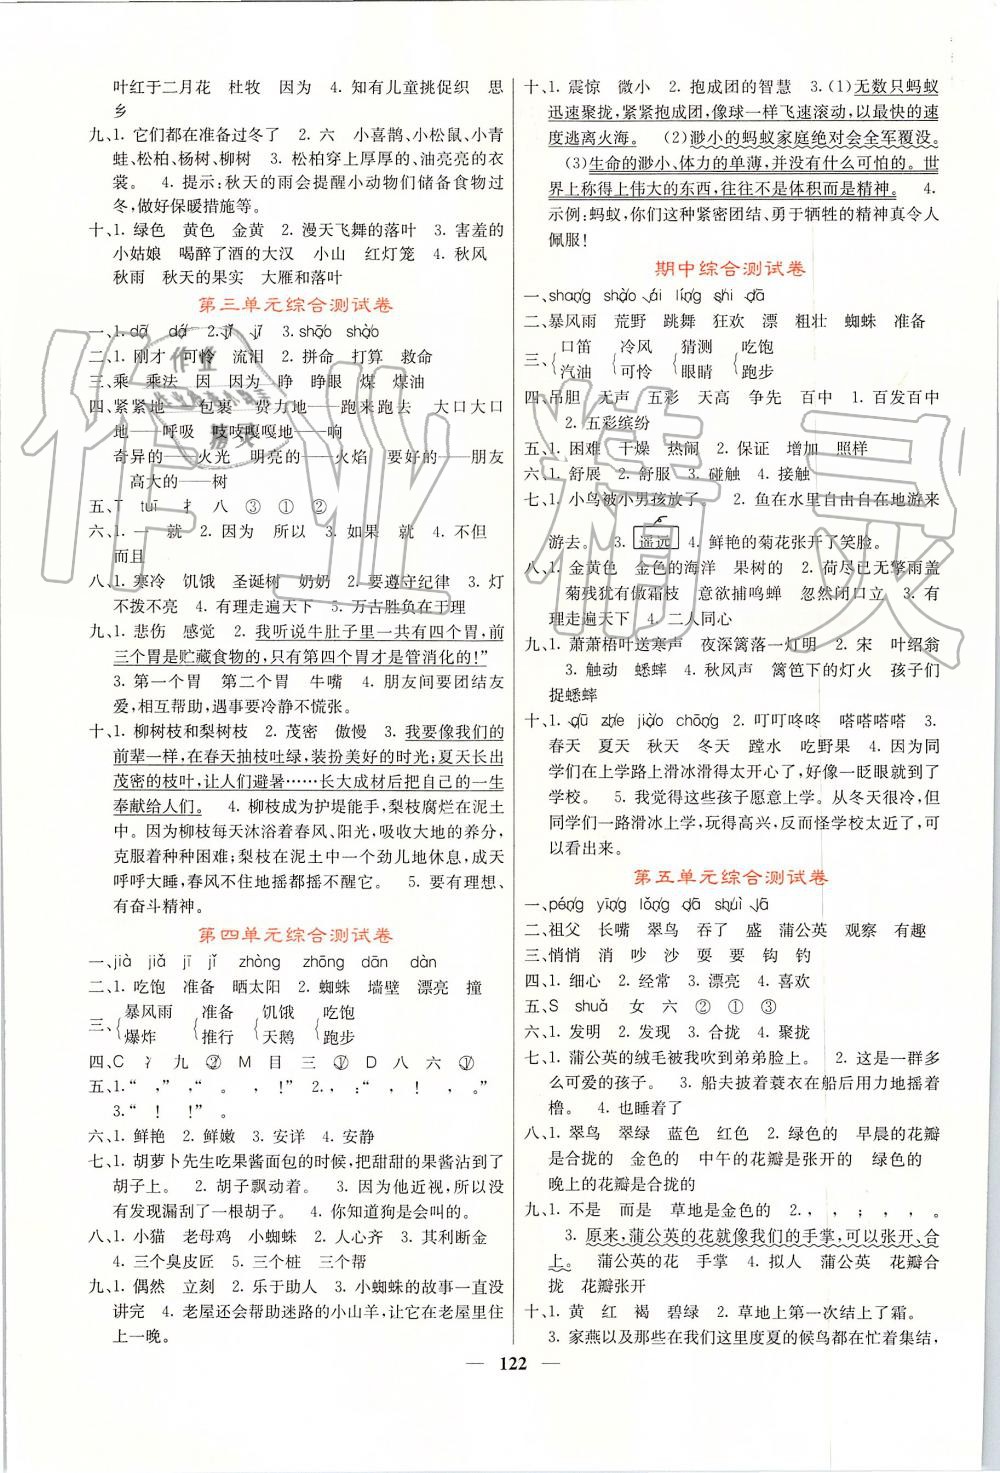 叶红于二月花　杜牧　因为　4. 知有儿童挑促织　思
乡
九、1. 它们都在准备过冬了　2. 六　小喜鹊、小松鼠、小青
蛙、松柏、杨树、柳树　3. 松柏穿上厚厚的、油亮亮的衣
裳。　4. 提示:秋天的雨会提醒小动物们储备食物过
冬,做好保暖措施等。
十、1. 绿色　黄色　金黄　2. 漫天飞舞的落叶　3. 害羞的
小姑娘　喝醉了酒的大汉　小山　红灯笼　4. 秋风
秋雨　秋天的果实　大雁和落叶
第三单元综合测试卷
一、1. dā　dá　2. jǐ　jī　3. shāo　shào
二、1. 刚才　可怜　流泪　2. 拼命　打算　救命
三、乘　乘法　因　因为　睁　睁眼　煤　煤油
四、紧紧地——包裹　费力地——跑来跑去　大口大口
地——呼吸　吱吱嘎嘎地——响
奇异的——火光　明亮的——火焰　要好的——朋友
高大的——树
五、T　tuī　扌　八　③　①　②
六、1. 一　就　2. 因为　所以　3. 如果　就　4. 不但
而且
八、1. 寒冷　饥饿　圣诞树　奶奶　2. 要遵守纪律　3. 灯
不拨不亮　4. 有理走遍天下　5. 万古胜负在于理
九、1. 悲伤　感觉　2. 我听说牛肚子里一共有四个胃,前
三个胃是贮藏食物的,只有第四个胃才是管消化的!”
3. 第一个胃　第二个胃　牛嘴　4. 朋友间要团结友
爱,相互帮助,遇事要冷静不慌张。
十、1. 柳树枝和梨树枝　2. 茂密　傲慢　3. 我要像我们的
前辈一样,在春天抽枝吐绿,装扮美好的时光;夏天长出
茂密的枝叶,让人们避暑……长大成材后把自己的一生
奉献给人们。　4. 柳枝成为护堤能手,梨枝腐烂在泥土
中。因为柳枝每天沐浴着春风、阳光,吸收大地的养分,
克服着种种困难;梨枝在泥土中一个劲儿地埋怨,成天
呼呼大睡,春风不住地摇都摇不醒它。　5. 要有理想、
有奋斗精神。
第四单元综合测试卷
一、jià　jiǎ　jī　jǐ　zhòng　zhōng　dān　dàn
二、1. 吃饱　准备　晒太阳　2. 蜘蛛　墙壁　漂亮　撞
三、{暴风雨　{准备　{饥饿　{吃饱
爆炸　推行　天鹅　跑步
四、C　冫　九　③　M　目　三　①　D　八　六　①
五、1. “　,”　“　。　,　!”　2. ,　:“　,　!　,　。”
3. “　!　!”　。
六、1. 鲜艳　2. 鲜嫩　3. 安详　4. 安静
七、1. 胡萝卜先生吃果酱面包的时候,把甜甜的果酱沾到了
胡子上。　2. 胡子飘动着。　3. 因为他近视,所以没
有发现漏刮了一根胡子。　4. 你知道狗是会叫的。
八、1. 小猫　老母鸡　小蜘蛛　2. 人心齐　3. 其利断金
4. 三个臭皮匠　5. 三个桩　三个帮
九、1. 偶然　立刻　2. 乐于助人　3. 小蜘蛛的故事一直没
讲完　4. 老屋还会帮助迷路的小山羊,让它在老屋里住
上一晚。
十、1. 震惊　微小　2. 抱成团的智慧　3. (1)无数只蚂蚁
迅速聚拢,紧紧抱成团,像球一样飞速滚动,以最快的速
度逃离火海。　(2)渺小的蚂蚁家庭绝对会全军覆没。
(3)生命的渺小、体力的单薄,并没有什么可怕的。世
界上称得上伟大的东西,往往不是体积而是精神。　4.
示例:蚂蚁,你们这种紧密团结、勇于牺牲的精神真令人
佩服!
期中综合测试卷
一、shang　shào　ái　líng　shi　dā
二、暴风雨　荒野　跳舞　狂欢　漂　粗壮　蜘蛛　准备
三、{口笛　{冷风　{猜测　{吃饱
汽油　可怜　眼睛　跑步
四、吊胆　无声　五彩　天高　争先　百中　1. 百发百中
2. 五彩缤纷
五、1. 困难　干燥　热闹　2. 保证　增加　照样
六、1. 舒展　2. 舒服　3. 碰触　4. 接触
七、1. 小鸟被小男孩放了　2. 鱼在水里自由自在地游来
游去。　3. 遥远　4. 鲜艳的菊花张开了笑脸。
八、1. 金黄色　金色的海洋　果树的　2. 荷尽已无擎雨盖
菊残犹有傲霜枝　意欲捕鸣蝉　忽然闭口立　3. 有
理走遍天下　4. 二人同心
九、1. 萧萧梧叶送寒声　夜深篱落一灯明　2. 宋　叶绍翁
3. 触动　蟋蟀　4. 秋风声　篱笆下的灯火　孩子们
捉蟋蟀
十、1. qū　zhe　jiào　chōng　2. 叮叮咚咚　嗒嗒嗒嗒　3.
春天　夏天　秋天　冬天　蹚水　吃野果　4. 因为同
学们在上学路上滑冰滑得太开心了,好像一眨眼就到了
学校。　5. 我觉得这些孩子愿意上学。从冬天很冷,但
同学们一路滑冰上学,玩得高兴,反而怪学校太近了,可
以看出来。
第五单元综合测试卷
一、péng　yīng　lǒng　dā　shuì　jiā
二、祖父　长嘴　翠鸟　吞了　盛　蒲公英　观察　有趣
三、悄悄　消　吵　沙　耍　要　钩　钓
四、1. 细心　2. 经常　3. 漂亮　4. 喜欢
五、S　shuǎ　女　六　②　①　③
六、1. 发明　2. 发现　3. 合拢　4. 聚拢
七、1. 蒲公英的绒毛被我吹到弟弟脸上。　2. 这是一群多
么可爱的孩子。　3. 船夫披着蓑衣在船后用力地摇着
橹。　4. 也睡着了
八、1. 翠鸟　翠绿　蓝色　红色　2. 绿色的　早晨的花瓣
是合拢的　金色的　中午的花瓣是张开的　绿色的
晚上的花瓣是合拢的
九、1. 不是　而是　草地是金色的　2. ,　,　;　,　,　。
3. 原来,蒲公英的花就像我们的手掌,可以张开、合
上。　蒲公英的花　手掌　4. 拟人　蒲公英　花瓣合
拢　花瓣张开
十、1. 黄　红　褐　碧绿　2. 草地上第一次结上了霜。
3. 家燕以及那些在我们这里度夏的候鸟都在忙着集结,
— 122 —
作业精灵